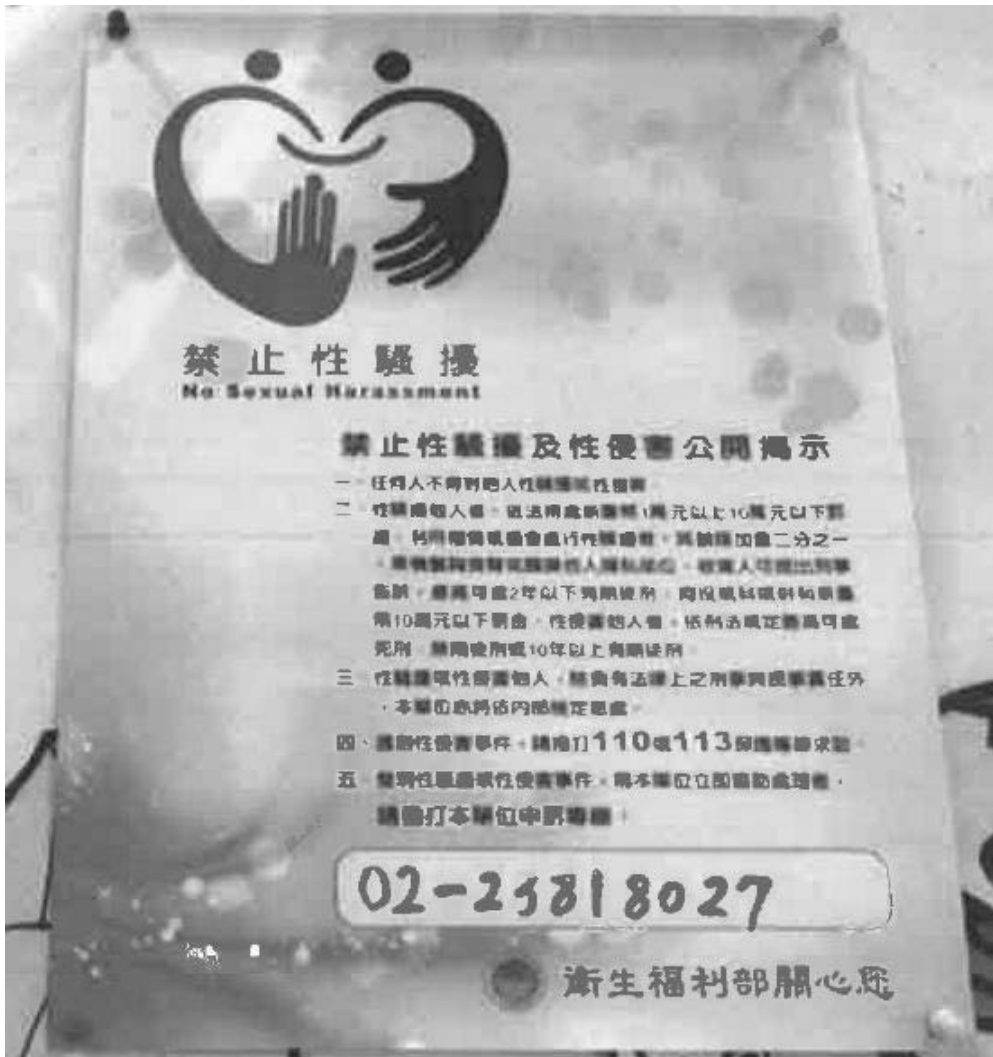 禁止性騷擾
No Sexual Harassment
禁止性騷擾及性侵害公開揭示
一、任何人不得對他人性騷擾或性侵害。
二、性騷擾他人者，依法得處新臺幣1萬元以上10萬元以下罰
鍰，利用權勢或機會進行性騷擾者，其罰鍰加重二分之一
告訴，最高可處2年以下有期徒刑
幣10萬元以下罰金，性侵害他人者，依刑法規定最高可處
死刑、無期徒刑或10年以上有期徒刑。
三、性騷擾或性侵害他人，除負有法律上之刑事與民事責任外
，本單位亦將依內部規定懲處。
四、遇到性侵害事件，請撥打110或113保護專線求助。
五、發現性騷擾或性侵害事件，需本單位立即協助處理者，
請撥打本單位申訴專線：
02-23818027
衛生福利部關心您